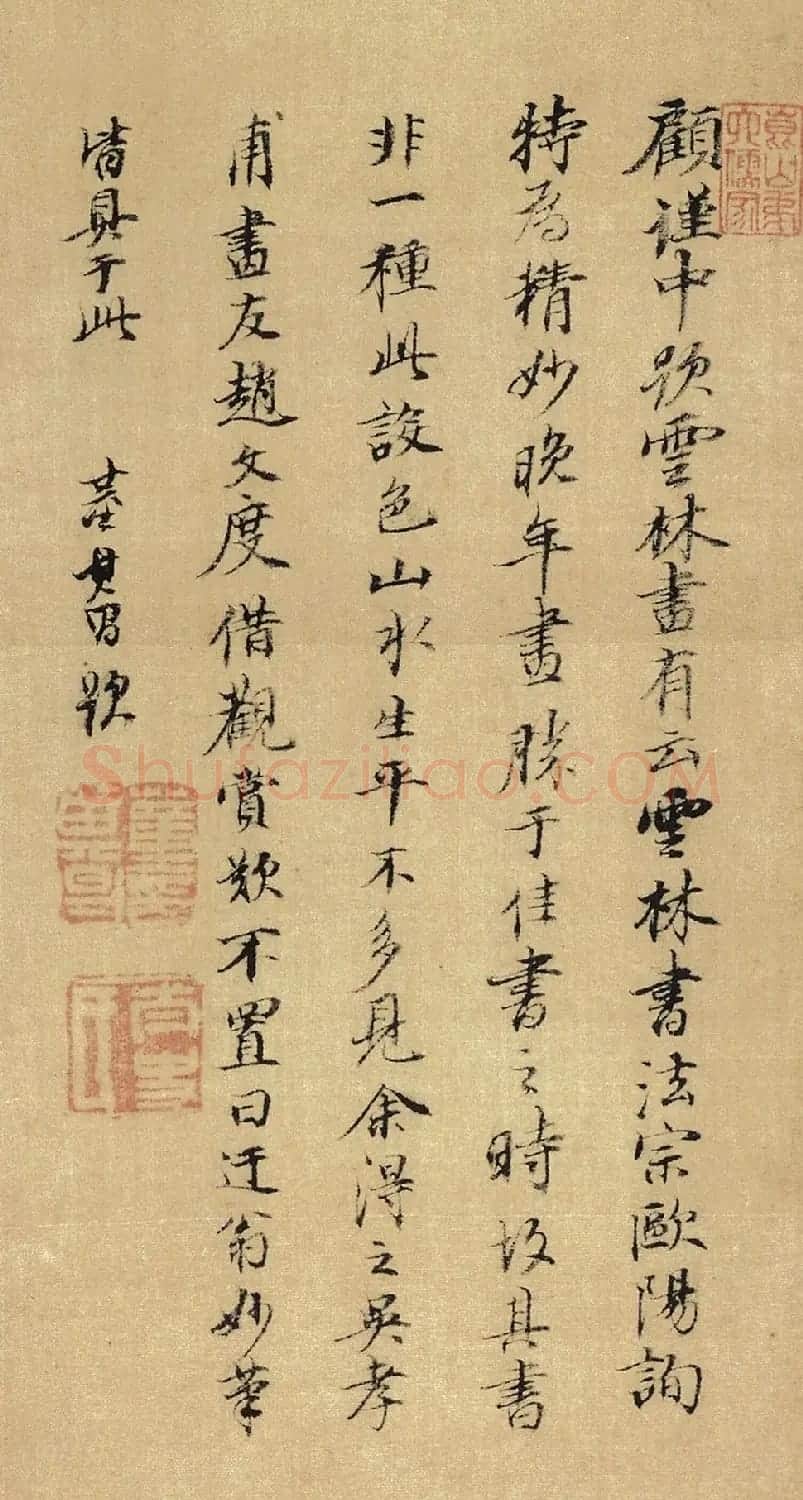 顧謹中題雲林畫有云雲林書法宗歐陽詢
特為精妙晚年畫勝于佳書之時故其書
非一種此設色山水生平不多見余得之吳孝
甫畫友趙文度借觀賞歎不置曰迂翁妙筆
皆具于此 董其昌題
Shufaziliao.COM